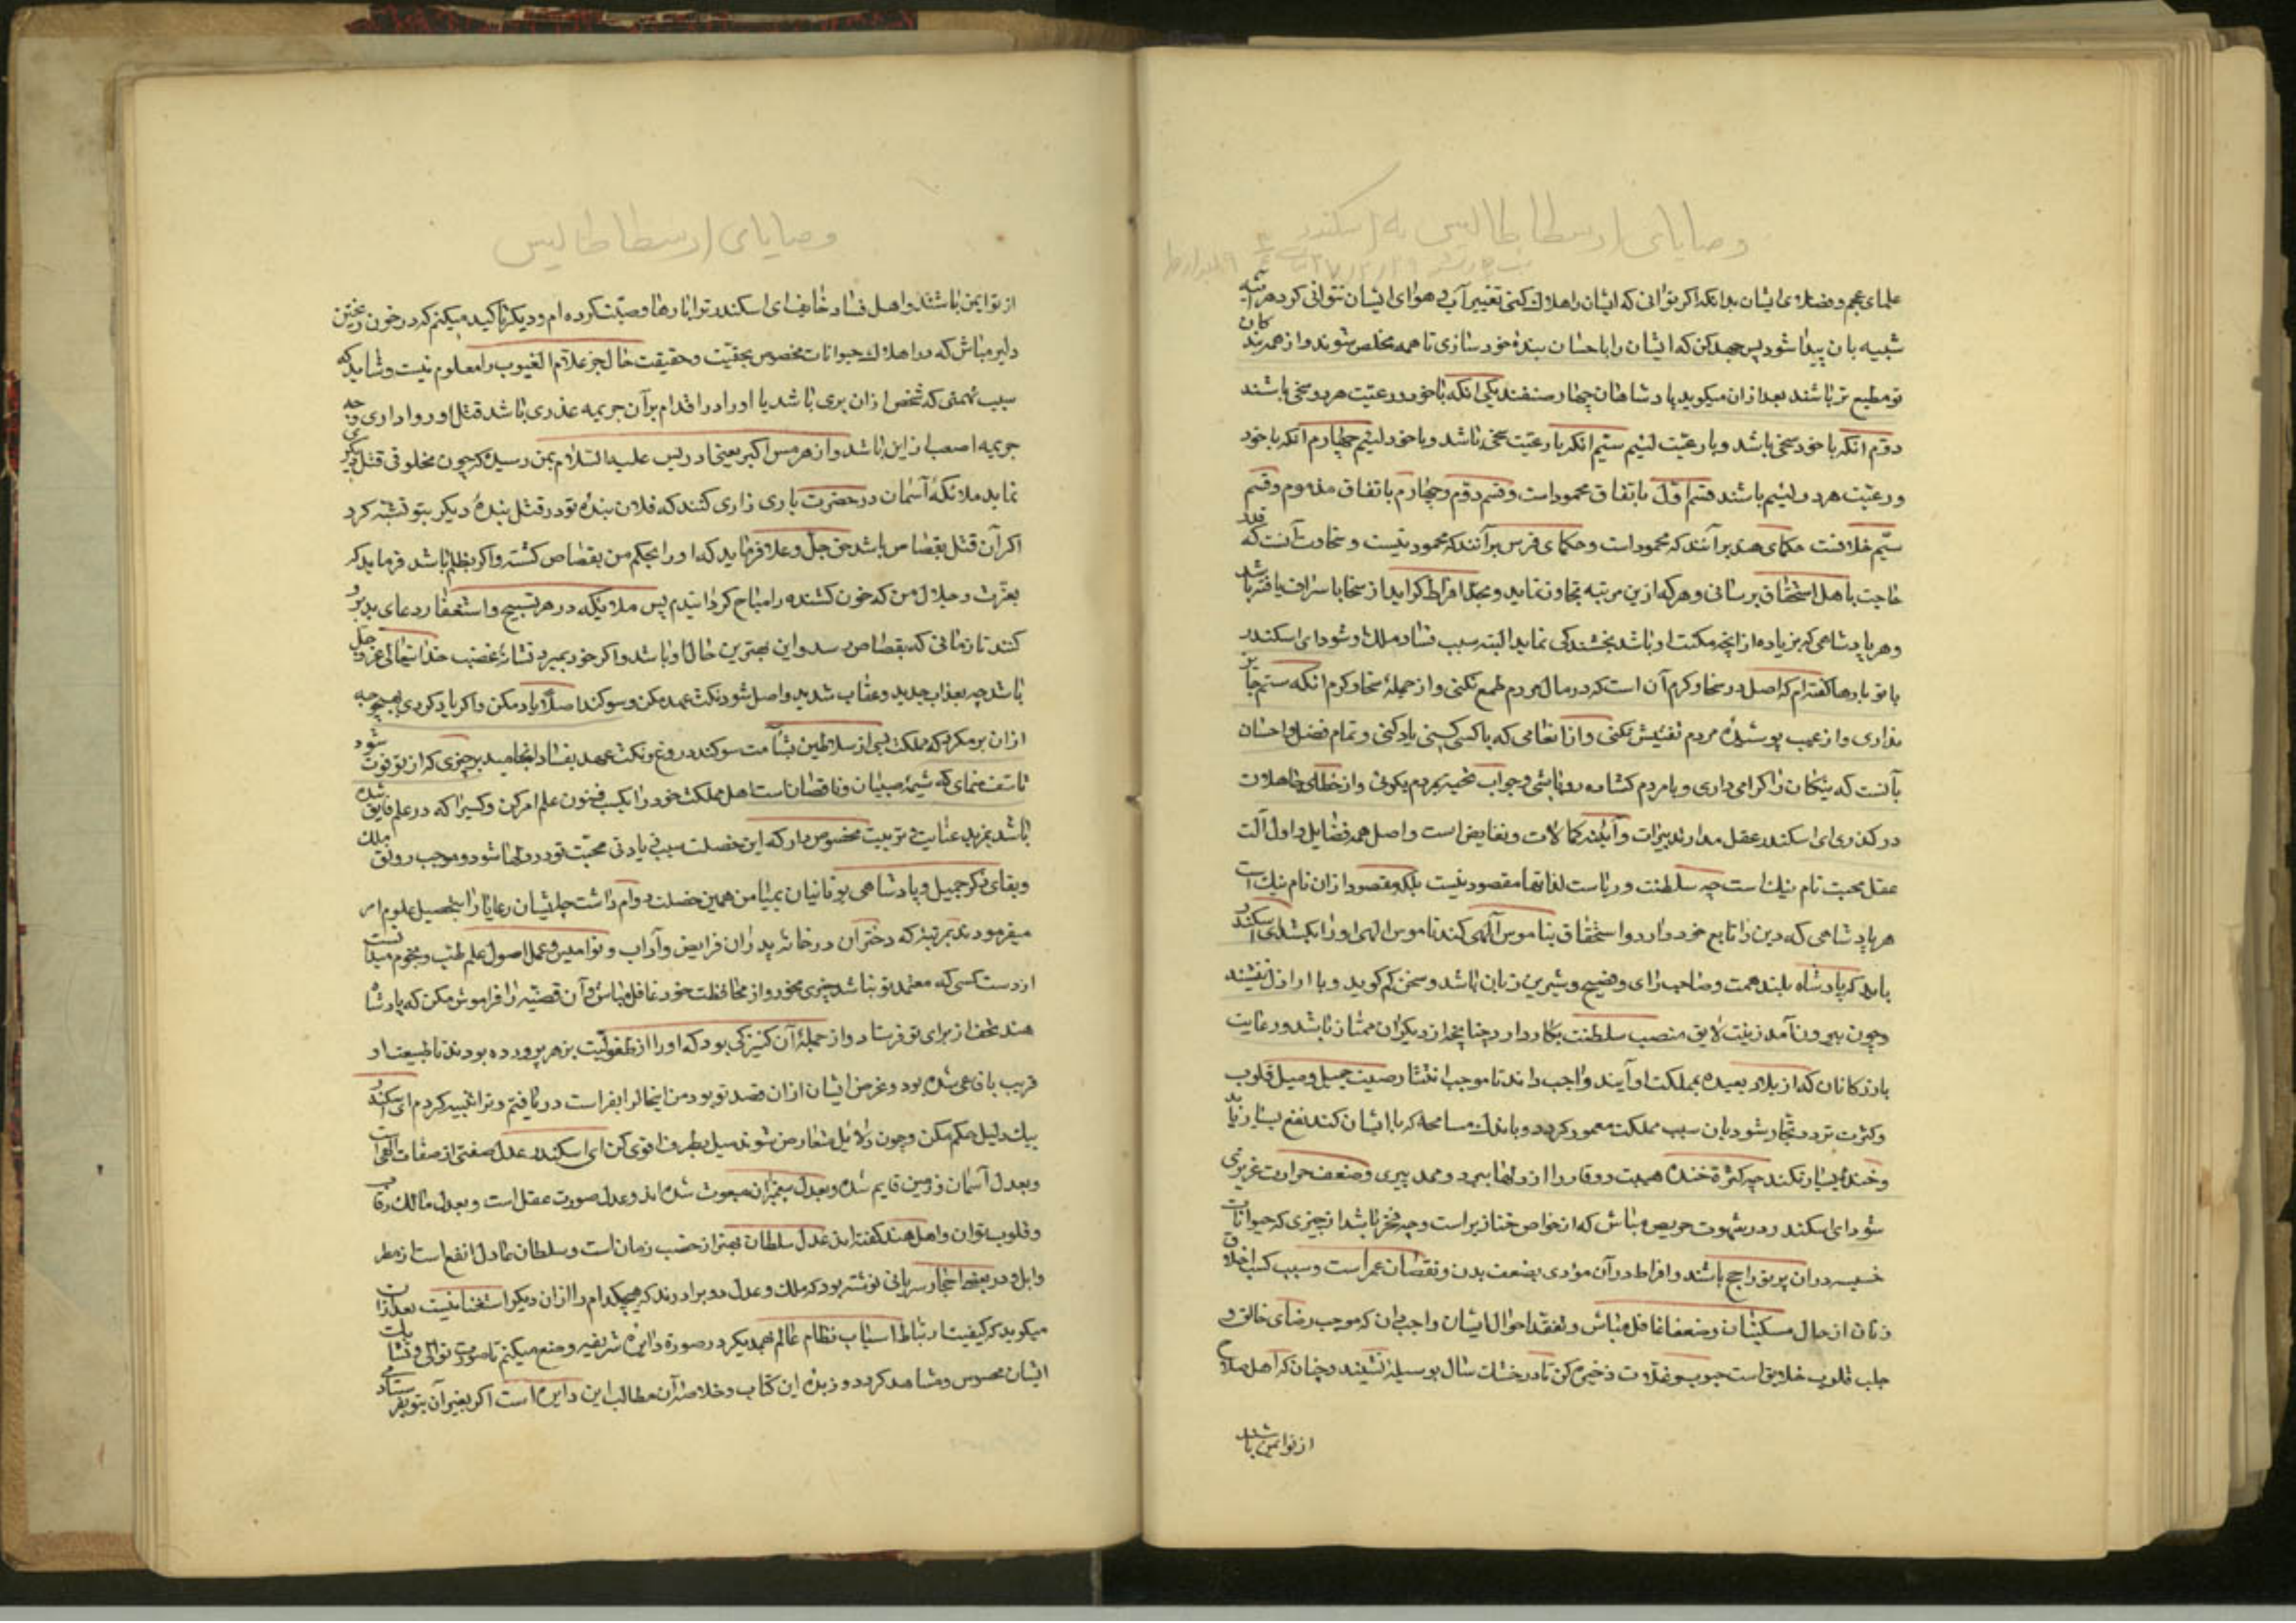 وصایای ارسطاطالیس به اسکندر
علمای عجم و فضلای ایشان بدانکه اگر توانی که ایشان را هلاك کنی تغییر آب و هوای ایشان نتوانی کرد هر آینه
شبیه بان پیدا شود پس جهد کن که ایشان را باحسان بندۀ خود سازی تا همه مخلص شوند و از همه بندکان
تو مطیع تر باشند بعد از ان میکوید پادشاهان چهار صنفند یکی انکه با خود و رعیّت هر دو سخی باشند
دوّم انکه با خود سخی باشد و با رعیّت لئیم سیّم انکه با رعیّت سخی باشد و با خود لئیم چهارم انکه با خود
و رعیّت هر دو لئیم باشند قسم اوّل باتفاق محمود است و قسم دوّم و چهارم باتفاق مذموم و قسم
سیّم خلافست حکمای هند بر آنند که محمود است و حکمای فرس بر آنند که محمود نیست و سخاوت آنست که قدر
حاجت باهل استحقاق برسانی و هر که ازین مرتبه تجاوز نماید و بحد افراط کراید از سخا باسراف یافته باشد
و هر پادشاهی که زیاده از انچه مکنت او باشد بخشندکی نماید البته سبب فساد ملك او شود ای اسکندر
با تو بارها کفته ام که اصل در سخا و کرم آن است که در مال مردم طمع نکنی و از جملۀ سخا و کرم انکه ستم جایز
نداری و از عیب پوشیدۀ مردم تفتیش نکنی و از انعامی که با کسی کنی یاد نکنی و تمام فضل و احسان
بآنست که نیکان را کرامی داری و با مردم کشاده رو باشی و جواب تحیّت مردم بکوئی و از خطای جاهلان
درکذری ای اسکندر عقل مدار تدبیرات و آینه کمالات و نقایص است و اصل همه فضایل و اول آلت
عقل محبت نام نیك است چه سلطنت و ریاست لذاتها مقصود نیست بلکه مقصود از ان نام نیك است
هر پادشاهی که دین را تابع خود دارد و استخفاف بناموس آلهی کند ناموس الهی او را بکشد ای اسکندر
باید که پادشاه بلند همت و صاحب رای و فصیح و شیرین زبان باشد و سخن کم کوید و با اراذل ننشیند
و چون بیرون آمد زینت لایق منصب سلطنت بکار دارد چنانچه از دیکران ممتاز باشد و رعایت
بازرکانان که از بلاد بعیده بمملکت او آیند واجب داند تا موجب انتشار صیت جمیل و میل قلوب
و کثرت تردد تجّار شود بان سبب مملکت معمور کردد و باندك مسامحه که با ایشان کند نفع بسیار یابد
و خندۀ بسیار نکند چه کثرة خنده هیبت و وقار را از دلها ببرد و ممد پیری و ضعف حرارت غریزی
شود ای اسکندر در شهوت حریص مباش که از خواص خنازیر است و چه فخر باشد از چیزی که حیوانات
خسیسه در ان بر تو راجح باشند و افراط در آن مؤدی بضعف بدن و نقصان عمر است و سبب کسب اخلاق
زنان از حال مسکینان و ضعفا غافل مباش و تفقد احوال ایشان واجب دان که موجب رضای خالق و
جلب قلوب خلایق است حبوب و غلات ذخیره کن تا در خشك سال بوسیله نشینند و چنان کن که اهل صلاح
از تو ایمن باشند
وصایای ارسطاطالیس
از تو ایمن باشند و اهل فساد خایف ای اسکندر ترا بارها وصیّت کرده ام و دیکر تاکید میکنم که در خون ریختن
دلیر مباش که در اهلاك حیوانات مخصوص بحقّیت و حقیقت حال جز علّام الغیوب را معلوم نیست و شاید که
سبب تهمتی که شخص از ان بری باشد یا او را در اقدام بر آن جریمه عذری باشد قتل او روا داری و چه
جریمه اصعب از این باشد و از هرمس اکبر یعنی ادریس علیه السلام بمن رسیده که چون مخلوقی قتل دیکری
نماید ملائکۀ آسمان در حضرت باری زاری کنند که فلان بندۀ تو در قتل بندۀ دیکر بتو تشبّه کرد
اکر آن قتل بقصاص باشد حق جلّ و علا فرماید که او را بحکم من بقصاص کشته و اکر بظلم باشد فرماید که
بعزّت و جلال من که خون کشنده را مباح کردانیدم پس ملایکه در هر تسبیح و استغفار دعای بد بر او
کنند تا زمانی که بقصاص رسد و این بهترین حال او باشد و اکر خود بمیرد نشانۀ غضب خدایتعالی عزّ و جلّ
باشد چه بعذاب جدید و عقاب شدید واصل شود نکث عهد مکن و سوکند اصلا یاد مکن و اکر یاد کردی بهیچوجه
از ان بر مکرد که مملکت بسی از سلاطین بشآمت سوکند دروغ و نکث عهد بفساد انجامید بر چیزی که از تو فوت شود
تاسف منمای که شیمۀ صبیان و ناقصان است اهل مملکت خود را بکسب فنون علم امر کن و کسی را که در علم فایق شده
باشد بمزید عنایت و تربیت مخصوص دار که این خصلت سبب زیادتی محبّت تو در دلها شود و موجب رونق ملك
و بقای ذکر جمیل و پادشاهی یونانیان بمیامن همین خصلت دوام داشت چه ایشان رعایا را بتحصیل علوم امر
میفرمودند بمرتبۀ که دختران در خانۀ پدران فرایض و آداب و نوامیس و عمل اصول علم طب و نجوم میدانست
از دست کسی که معتمد تو نباشد چیزی مخور و از محافظت خود غافل مباش و آن قضیّه را فراموش مکن که پادشاه
هند تحف از برای تو فرستاد و از جملۀ آن کنیزکی بود که او را از طفولّیت بزهر پرورده بودند تا طبیعت او
قریب بافعی شده بود و غرض ایشان از ان قصد تو بود من اینحال را بفراست دریافتم و ترا تنبیه کردم ای اسکندر
بیك دلیل حکم مکن و چون دلائل متعارض شوند میل بطرف اقوی کن ای اسکندر عدل صفتی از صفات الهی است
و بعدل آسمان و زمین قایم شده و بعدل پیغمبران مبعوث شده اند و عدل صورت عقل است و بعدل مالك رقاب
و قلوب توان و اهل هند کفته اند عدل سلطان بهتر از خصب زمان است و سلطان عادل انفع است از مطر
وابل و در بعضی احجار سریانی نوشته بود که ملك و عدل دو برادرند که هیچکدام را از ان دیکر استغنا نیست بعد از ان
میکوید که کیفیت ارتباط اسباب نظام عالم بهمدیکر در صورة دایرۀ شریفه وضع میکنم تا صورت توالی و تشابك
ایشان محسوس و مشاهد کردد و زبدۀ این کتاب و خلاصۀ آن مطالب این دایره است اکر بغیر آن بتو نفرستادمی